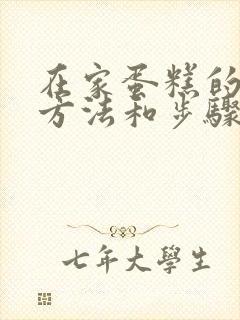 在家蛋糕的
方法和步驟
七年大學生